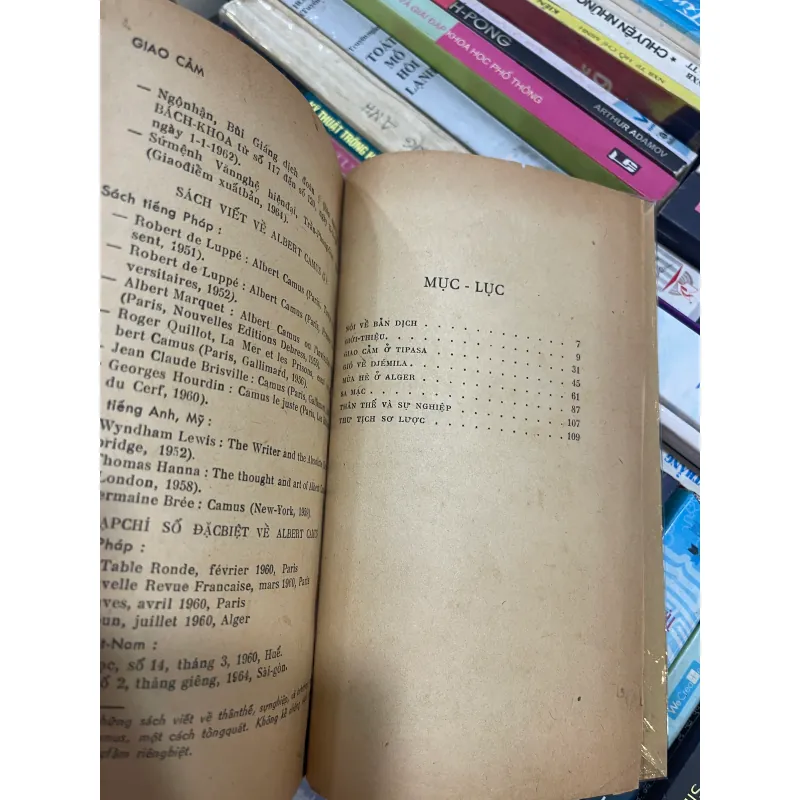 GIAO CẢM
— Ngộnhận, Bùi Giáng dịch
BÁCH-KHOA từ số 117 đến số
ngày 1-1-1962).
— Sứmệnh Vănnghệ hiệnđại,
(Giaođiểm xuấtbản, 1964).
SÁCH VIẾT VỀ ALBERT CAMUS
Sách tiếng Pháp :
— Robert de Luppé : Albert Camus (Paris,
sent, 1951).
— Robert de Luppé : Albert Camus (Paris,
versitaires, 1952).
— Albert Marquet : Albert Camus ou
(Paris, Nouvelles Editions Debress, 1955).
— Roger Quillot, La Mer et les Prisons,
bert Camus (Paris, Gallimard, 1956).
— Jean Claude Brisville : Camus (Paris,
Georges Hourdin : Camus le juste (Paris,
du Cerf, 1960).
tiếng Anh, Mỹ :
Wyndham Lewis : The Writer and the
bridge, 1952).
Thomas Hanna : The thought and art of Albert
London, 1958).
ermaine Brée : Camus (New-York,
APCHÍ SỐ ĐẶCBIỆT VỀ ALBERT
Pháp :
Table Ronde, février 1960, Paris
velle Revue Francaise, mars 1960, Paris
ves, avril 1960, Paris
oun, juillet 1960, Alger
t-Nam :
ọc, số 14, tháng 3, 1960, Huế.
ố 2, tháng giêng, 1964, Sài-gòn.
hững sách viết về thânthế, sựnghiệp,
mus, một cách tổngquát. Không kể
phẩm riêngbiệt.
MỤC - LỤC
NÓI VỀ BẢN DỊCH . . . . . . . . . 7
GIỚI-THIỆU . . . . . . . . . 9
GIAO CẢM Ở TIPASA . . . . . . . . . 31
GIÓ VỀ DJÉMILA . . . . . . . . . 45
MÙA HÈ Ở ALGER . . . . . . . . . 61
SA MẠC . . . . . . . . . 87
THÂN THẾ VÀ SỰ NGHIỆP . . . . . . . . . 107
THƯ TỊCH SƠ LƯỢC . . . . . . . . . 109
TOÁT
MỒ
HÔI
LẠNH
KỸ THUẬT TRỒNG
H-PONG
VÀ GIẢI ĐÁP KHOA HỌC PHỔ THÔNG
ARTHUR ADAMOV
CHUYỆN NHỮNG
KIẾN
NXB
WeCreat